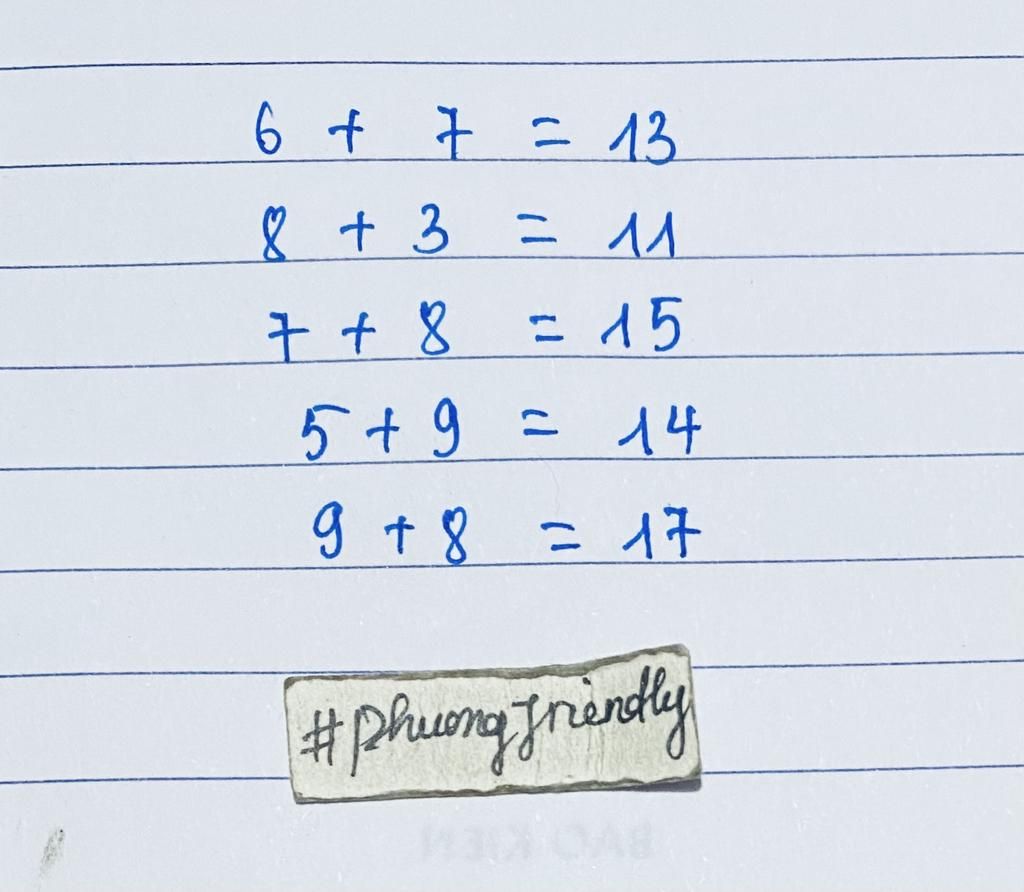 6 + 7 = 13
8 + 3 = 11
7 + 8 = 15
5 + 9 = 14
9 + 8 = 17
#Phuongfriendly